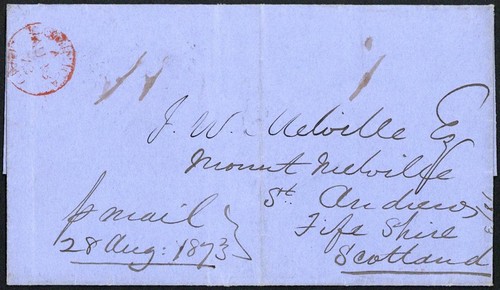 J. W. Melville Esq
Mount Melville
St. Andrews
Fife Shire
Scotland
p mail
28 Aug: 1873